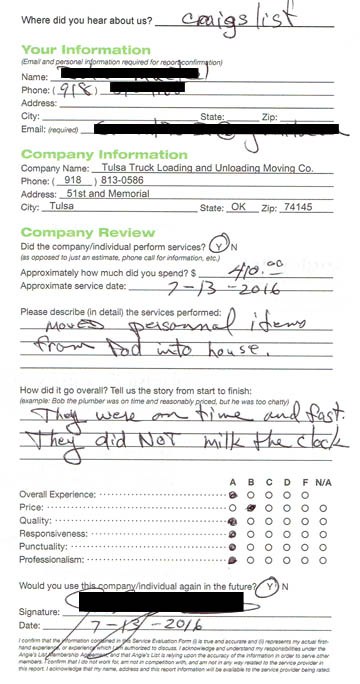 Where did you hear about us? craigslist
Your Information
(Email and personal information required for report confirmation)
Name:
Phone: (918)
Address:
City: State: Zip:
Email: (required)
Company Information
Company Name: Tulsa Truck Loading and Unloading Moving Co.
Phone: ( 918 ) 813-0586
Address: 51st and Memorial
City: Tulsa State: OK Zip: 74145
Company Review
Did the company/individual perform services? Y N
(as opposed to just an estimate, phone call for information, etc.)
Approximately how much did you spend? $ 410.00
Approximate service date: 7-13-2016
Please describe (in detail) the services performed:
moved personnal items
from Pod into house.
How did it go overall? Tell us the story from start to finish:
(example: Bob the plumber was on time and reasonably priced, but he was too chatty)
They were on time and fast.
They did NOT milk the clock
A B C D F N/A
Overall Experience:
Price:
Quality:
Responsiveness:
Punctuality:
Professionalism:
Would you use this company/individual again in the future? Y N
Signature:
Date: 7-13-2016
I confirm that the information contained in this Service Evaluation Form (i) is true and accurate and (ii) represents my actual first-
hand experience, or experience which I am authorized to discuss. I acknowledge and understand my responsibilities under the
Angie's List Membership Agreement, and that Angie's List is relying upon the accuracy of the information in order to serve other
members. I confirm that I do not work for, am not in competition with, and am not in any way related to the service provider in
this report. I acknowledge that my name, address and this report information will be available to the service provider being rated.